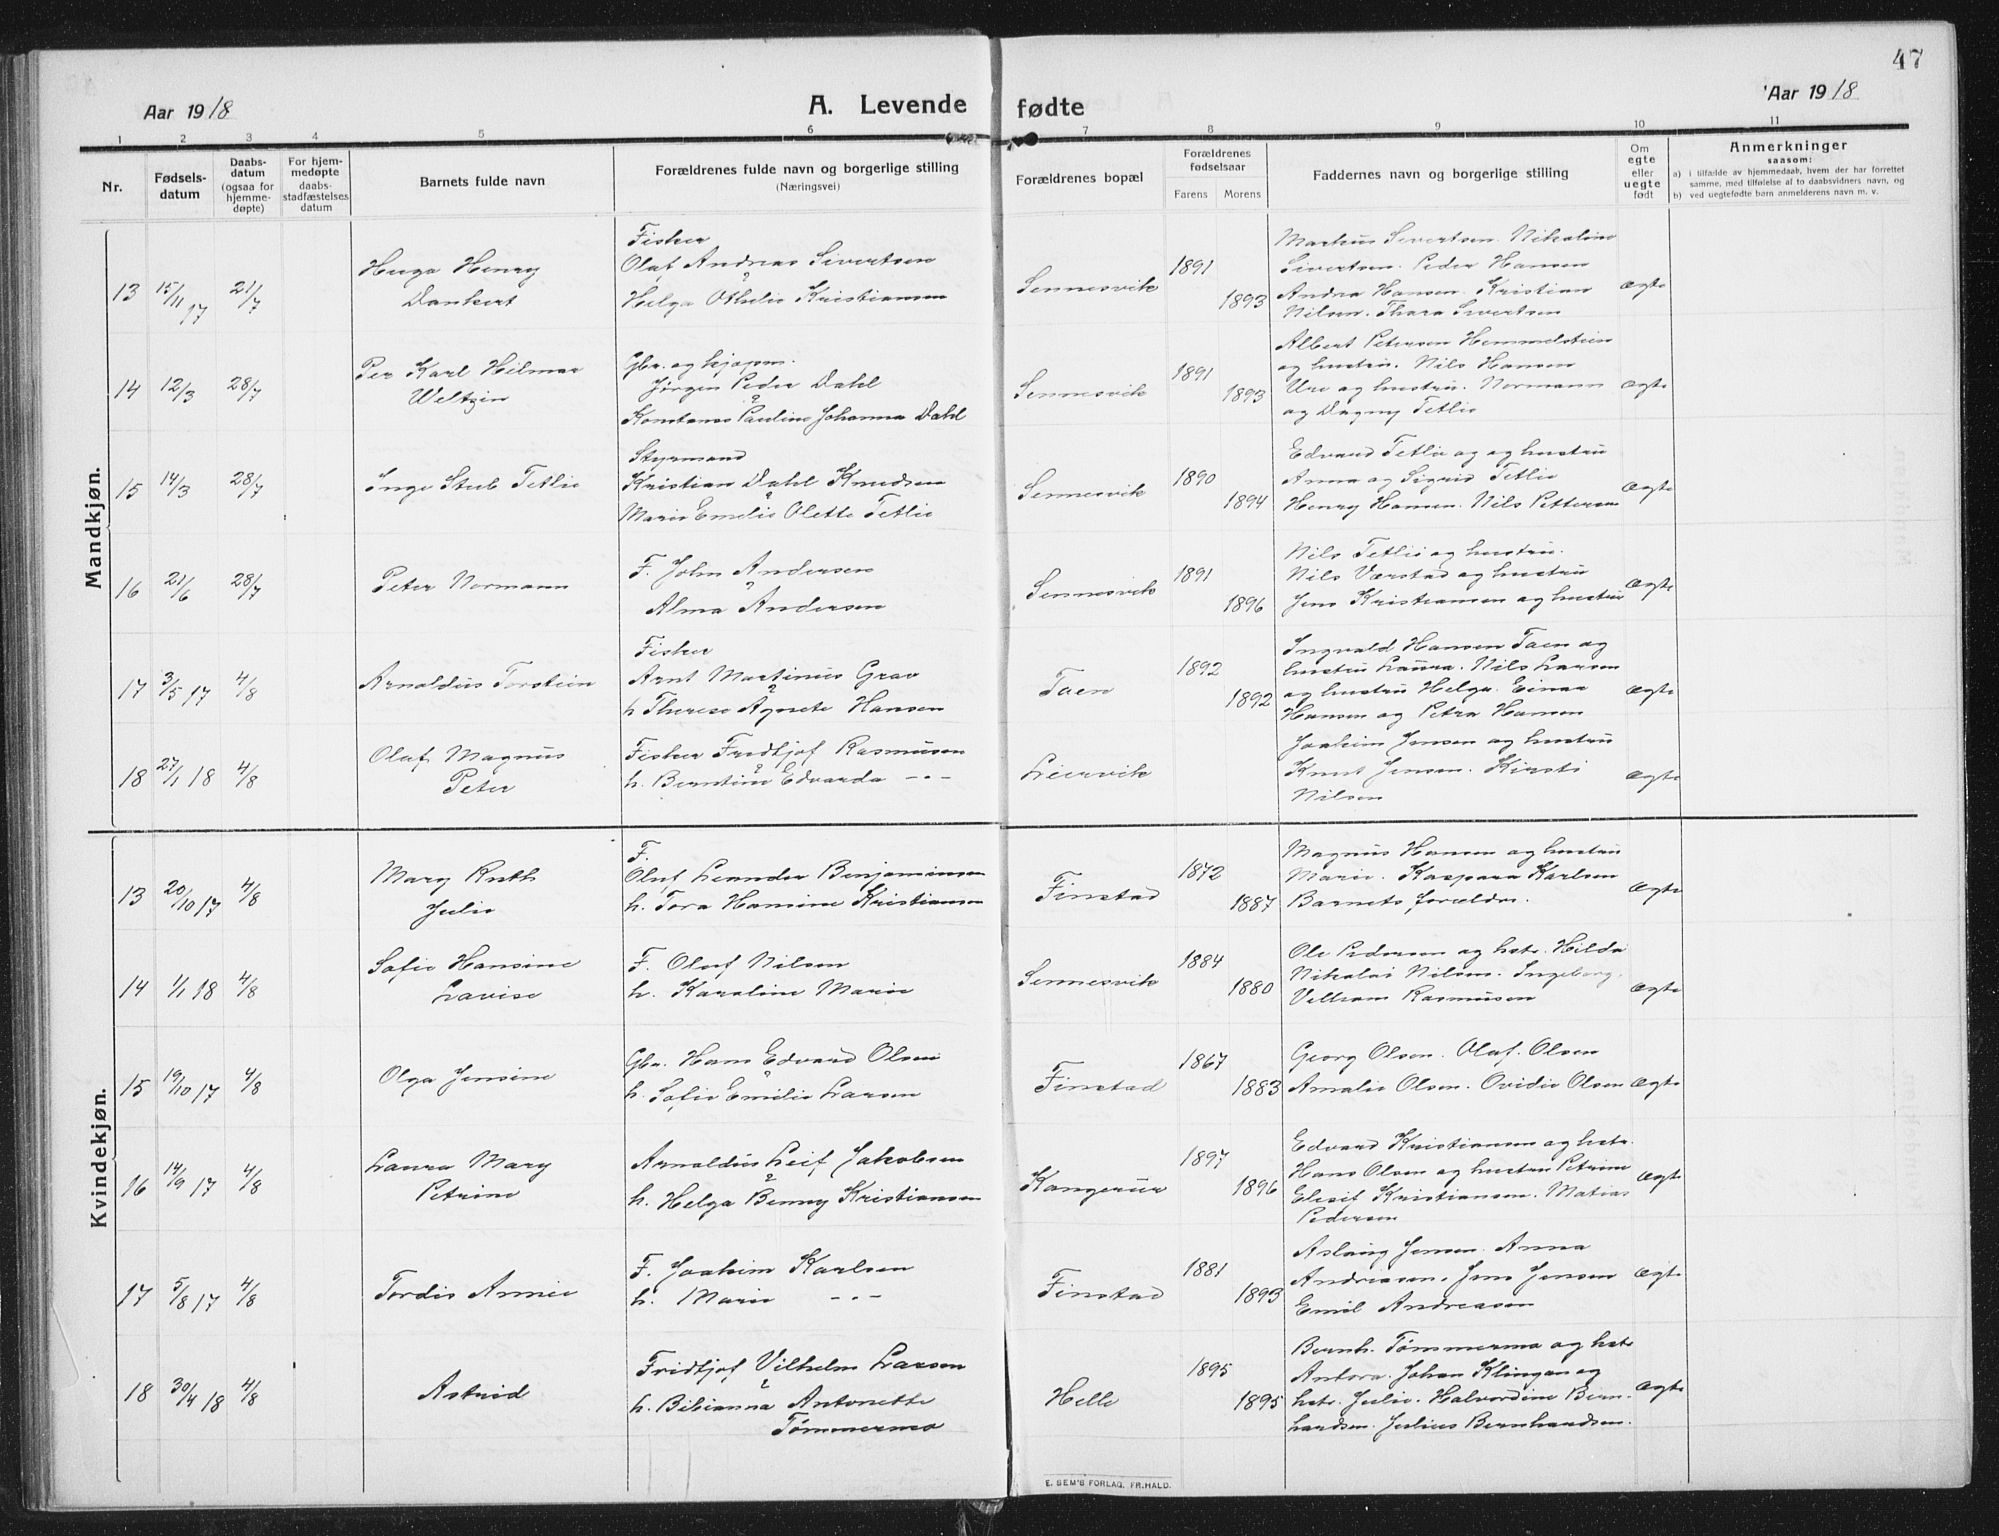 47
Aar 1918
A. Levende fødte
Aar 1918
1 2 3 4 5 6 7 8 9 10 11
Nr.
Fødsels-
datum
Daabs-
datum
(ogsaa for
hjemme-
døpte)
For hjem-
medøpte
daabs-
stadfæstelses
datum
Barnets fulde navn
Forældrenes fulde navn og borgerlige stilling
(Næringsvei)
Forældrenes bopæl
Forældrenes
fødselsaar
Farens Morens
Faddernes navn og borgerlige stilling
Om
egte
eller
uegte
født
Anmerkninger
saasom:
a) i tilfælde av hjemmedaab, hvem der har forrettet
samme, med tilføielse af to daabsvidners navn, og
b) ved uegtefødte børn anmelderens navn m. v.
Mandkjøn.
13 15/11 17 21/7
Hugo Henry
Dankert
Fisker
Olaf Andreas Sivertsen
Helga Othelie Kristiansen
Sennesvik
1891
1893
Markus Sivertsen. Nikoline
Sivertsen. Peder Hansen
Andra Hansen. Kristian
Nilsen. Thora Sivertsen
Ægte
14 12/3 28/7
Per Karl Hilmar
Weltzin
Gbr. og kjøpm.
Jørgen Peder Dahl
Konstanse Pauline Johanna Dahl
Sennesvik
1891
1893
Albert Petersen Hemmelstein
og hustru. Nils Hansen
Ure og hustru. Normann
og Dagny Tetlie
Ægte
15 14/3 28/7
Inge Stub Tetlie
Styrmand
Kristian Dahl Knudsen
Marie Emelie Olette Tetlie
Sennesvik
1890
1894
Edvard Tetlie og og hustru
Anna og Sigrid Tetlie
Henry Hansen. Nils Pettersen
Ægte
16 21/6 28/7
Peter Normann
F. John Andersen
Alma Andersen
Sennesvik
1891
1896
Nils Tetlie og hustru.
Nils Værstad og hustru
Jens Kristiansen og hustru
Ægte
17 3/5 17 4/8
Arnoldus Torstein
Fisker
Arnt Martinus Grav
h Therese Agnete Hansen
Taen
1892
1892
Ingvald Hansen Taen og
hustru Laura. Nils Larsen
og hustru Helga. Einar
Hansen og Petra Hansen
Ægte
18 27/1 18 4/8
Olaf Magnus
Peter
Fisker Fridtjof Rasmusen
h. Berntine Edvarda -"-
Leirvik
Joakim Jensen og hustru
Knut Jensen. Kirsti
Nilsen
Ægte
Kvindekjøn.
13 20/10 17 4/8
Mary Ruth
Julie
F.
Oluf Leander Benjaminsen
h. Tora Hansine Kristiansen
Finstad
1872
1887
Magnus Hansen og hustru
Marie. Kaspara Karlsen
Barnets forældre.
Ægte
14 1/1 18 4/8
Sofie Hansine
Lovise
F. Oluf Nilsen
h. Karoline Marie
Sennesvik
1884
1880
Ole Pedersen og hstr. Hilda
Nikolai Nilsen. Ingeborg.
Vilham Rasmusen
Ægte
15 19/10 17 4/8
Olga Jensine
Gbr. Hans Edvard Olsen
h. Sofie Emilie Larsen
Finstad
1867
1883
Georg Olsen. Olaf. Olsen
Amalie Olsen. Ovidie Olsen
Ægte
16 14/9 17 4/8
Laura Mary
Petrine
Arnoldus Leif Jakobsen
h. Helga Benny Kristiansen
Kangerur
1897
1896
Edvard Kristiansen og hstr.
Hans Olsen og hustru Petrine
Elisif Kristiansen. Matias
Pedersen
Ægte
17 5/8 17 4/8
Tordis Annie
F. Joakim Karlsen
h. Marie -"-
Finstad
1881
1893
Aslaug Jensen. Anna
Andreasen. Jens Jensen
Emil Andreasen
Ægte
18 30/4 18 4/8
Astrid
Fridtjof Vilhelm Larsen
h. Bibianna Antonette
Tømmermo
Helle
1895
1895
Bernh. Tømmermo og hstr
Antora. Johan Klingan og
hstr. Julie. Halvordine Bern-
hardsen. Julius Bernhardsen.
Ægte
E. SEM'S FORLAG, FR.HALD.